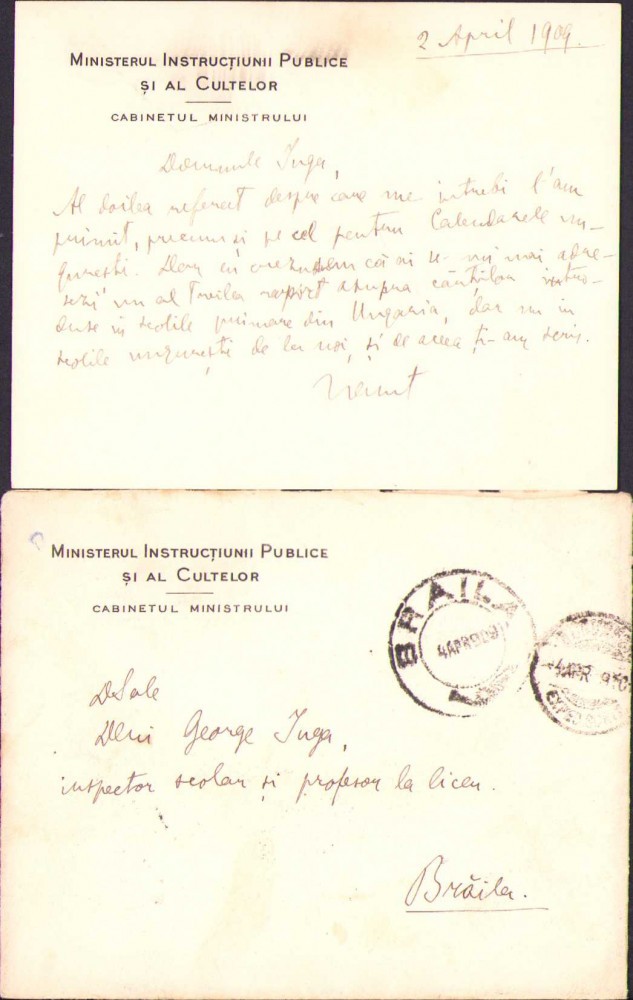 2 April 1909.
MINISTERUL INSTRUCȚIUNII PUBLICE
ȘI AL CULTELOR
CABINETUL MINISTRULUI
Domnule Inga,
Al doilea referat despre care me întrebi l'am
primit, precum și pe cel pentru Calendarele un-
gurești. Dar eu credeam că ai să-mi mai adre-
sezi un al treilea raport asupra cărților intro-
duse in scolile primare din Ungaria, dar nu in
scolile ungurești de la noi, și de aceea ți-am scris.
MINISTERUL INSTRUCȚIUNII PUBLICE
ȘI AL CULTELOR
CABINETUL MINISTRULUI
BRAILA
4 APR 909
4 APR
DSale
Dlui George Inga,
inspector scolar și profesor la liceu.
Brăila.